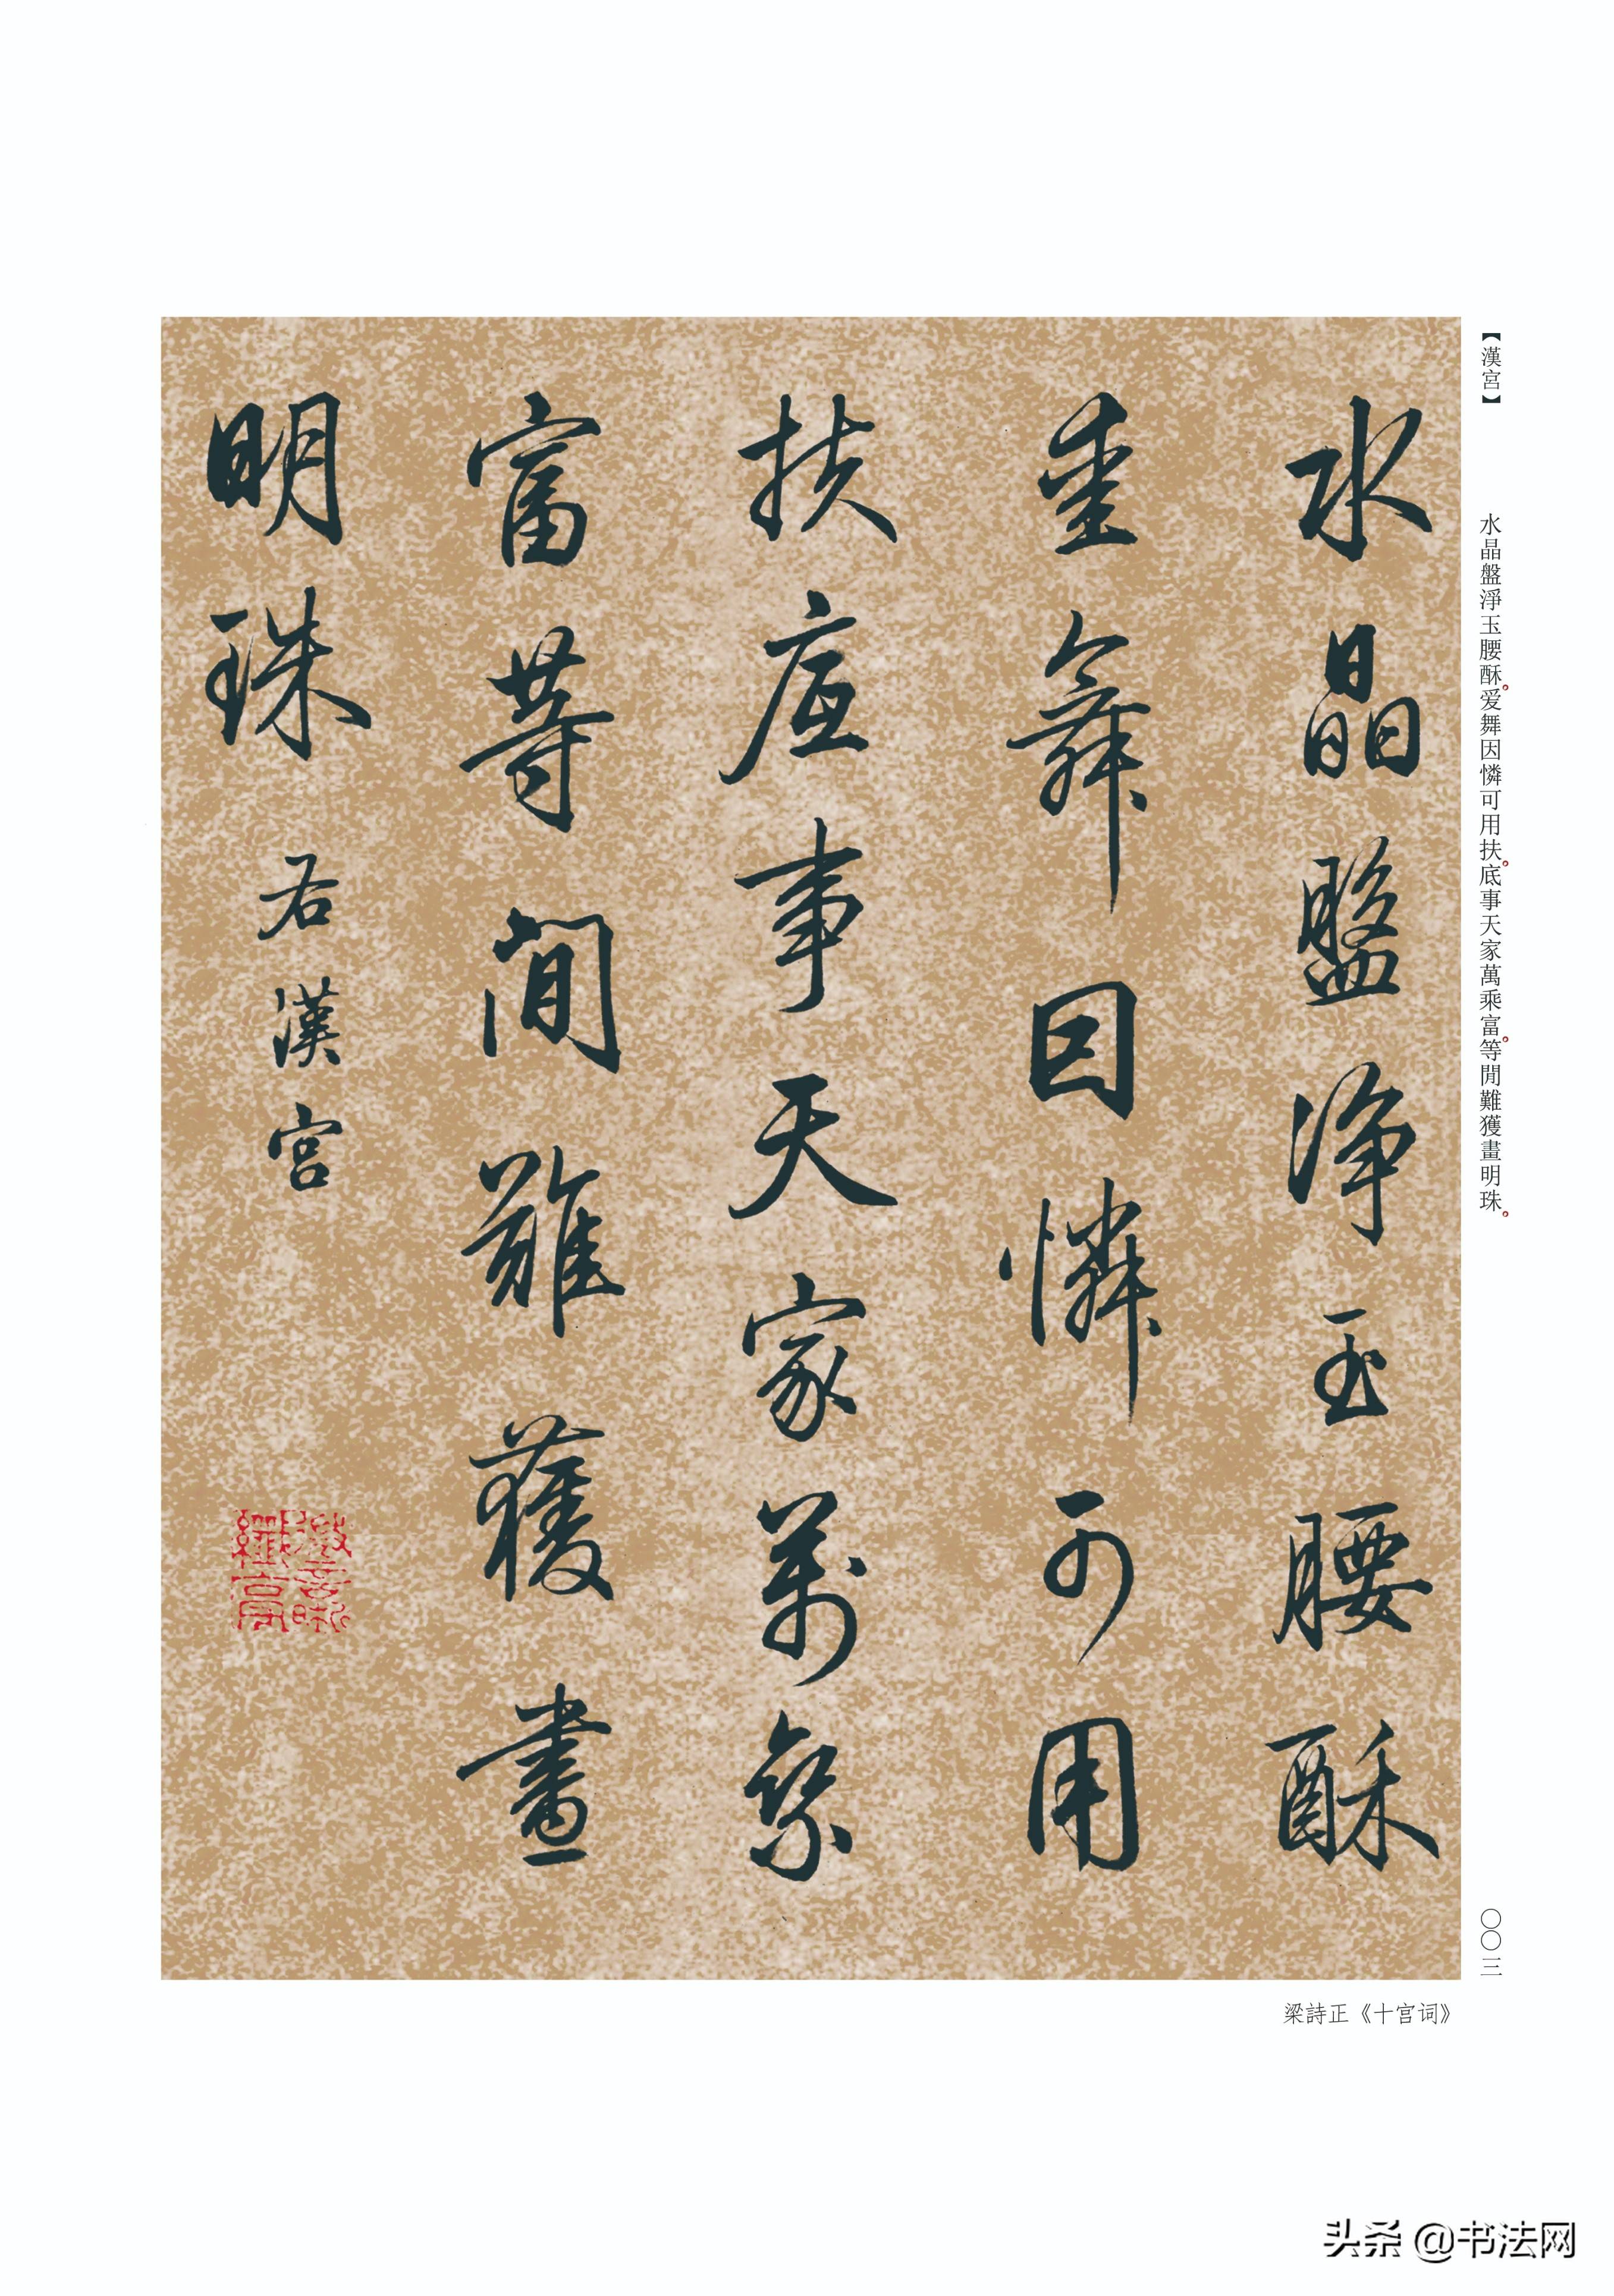 【漢宮】
水晶盤淨玉腰酥。爱舞因憐可用扶。底事天家萬乘富。等閒難獲畫明珠。
〇〇三
水晶盤淨玉腰酥
舞因憐可用
扶底事天家萬乘
富等閒難獲畫
明珠
右漢宮
梁詩正《十宫词》
头条 @书法网